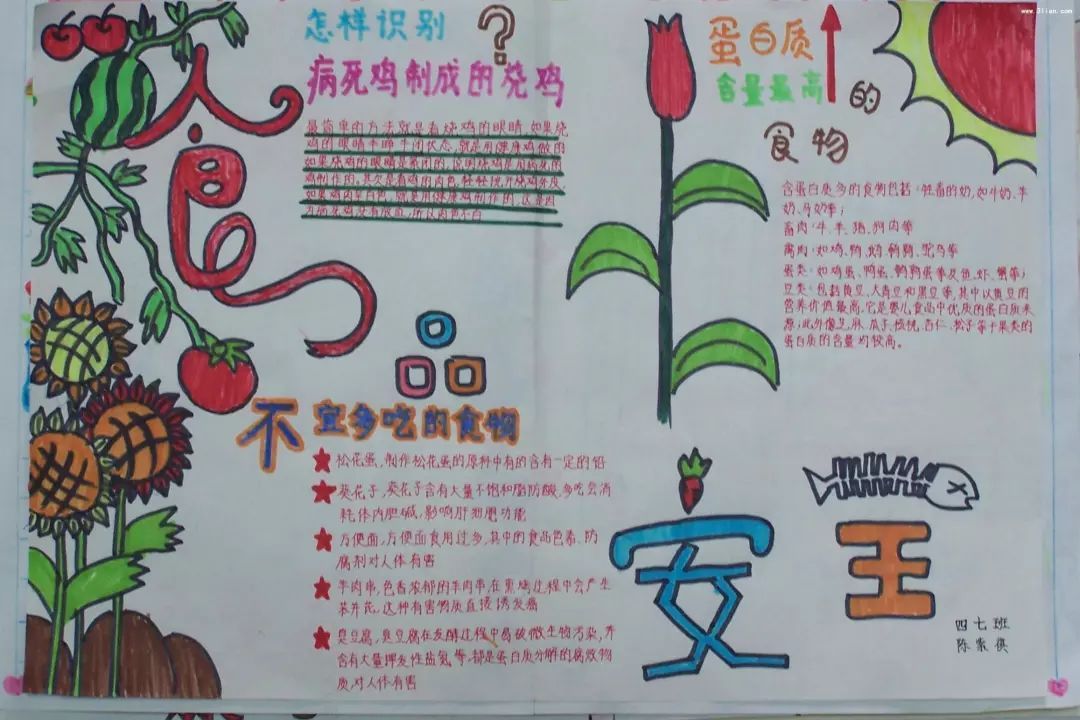 食
品
安
王
怎样识别?
病死鸡制成的烧鸡
最简单的方法就是看烧鸡的眼睛,如果烧
鸡的眼睛半睁半闭状态,就是用健康鸡做的
如果烧鸡的眼睛是紧闭的,说明烧鸡是用病死的
鸡制作的,其次是看鸡的肉色,轻轻挑开烧鸡外皮
如果鸡肉呈白色,就是用健康鸡制作的,这是因
为病死鸡没有放血,所以肉色不白
蛋白质
含量最高的
食物
含蛋白质多的食物包括:牲畜的奶,如牛奶、羊
奶、马奶等;
畜肉:牛、羊、猪、狗肉等
禽肉:如鸡、鸭、鹅、鹌鹑、鸵鸟等
蛋类:如鸡蛋、鸭蛋、鹌鹑蛋等及鱼、虾、蟹等;
豆类:包括黄豆、大青豆和黑豆等,其中以黄豆的
营养价值最高,它是婴儿食品中优质的蛋白质来
源;此外像芝麻、瓜子、核桃、杏仁、松子等干果类的
蛋白质的含量均较高。
不宜多吃的食物
松花蛋,制作松花蛋的原料中有的含有一定的铅
葵花子,葵花子含有大量不饱和脂肪酸,多吃会消
耗体内胆碱,影响肝功能
方便面,方便面食用过多,其中的食品色素、防
腐剂对人体有害
羊肉串,色香浓郁的羊肉串,在熏烤过程中会产生
苯并芘,这种有害物质直接诱发癌
臭豆腐,臭豆腐在发酵过程中易被微生物污染,并
含有大量挥发性盐氮等,都是蛋白质分解的腐败物
质,对人体有害
四七班
www.3lian.com